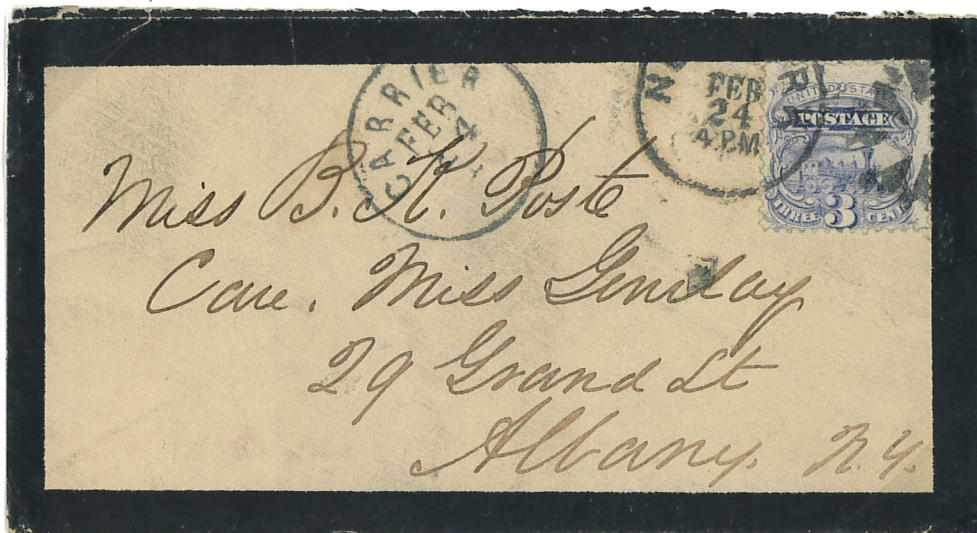 CARRIER
FEB
FEB
24
4.P.M
UNITED STATES
POSTAGE
THREE 3 CENTS
Miss B. K. Poste
Care. Miss
29 Grand St
Albany. N.Y.